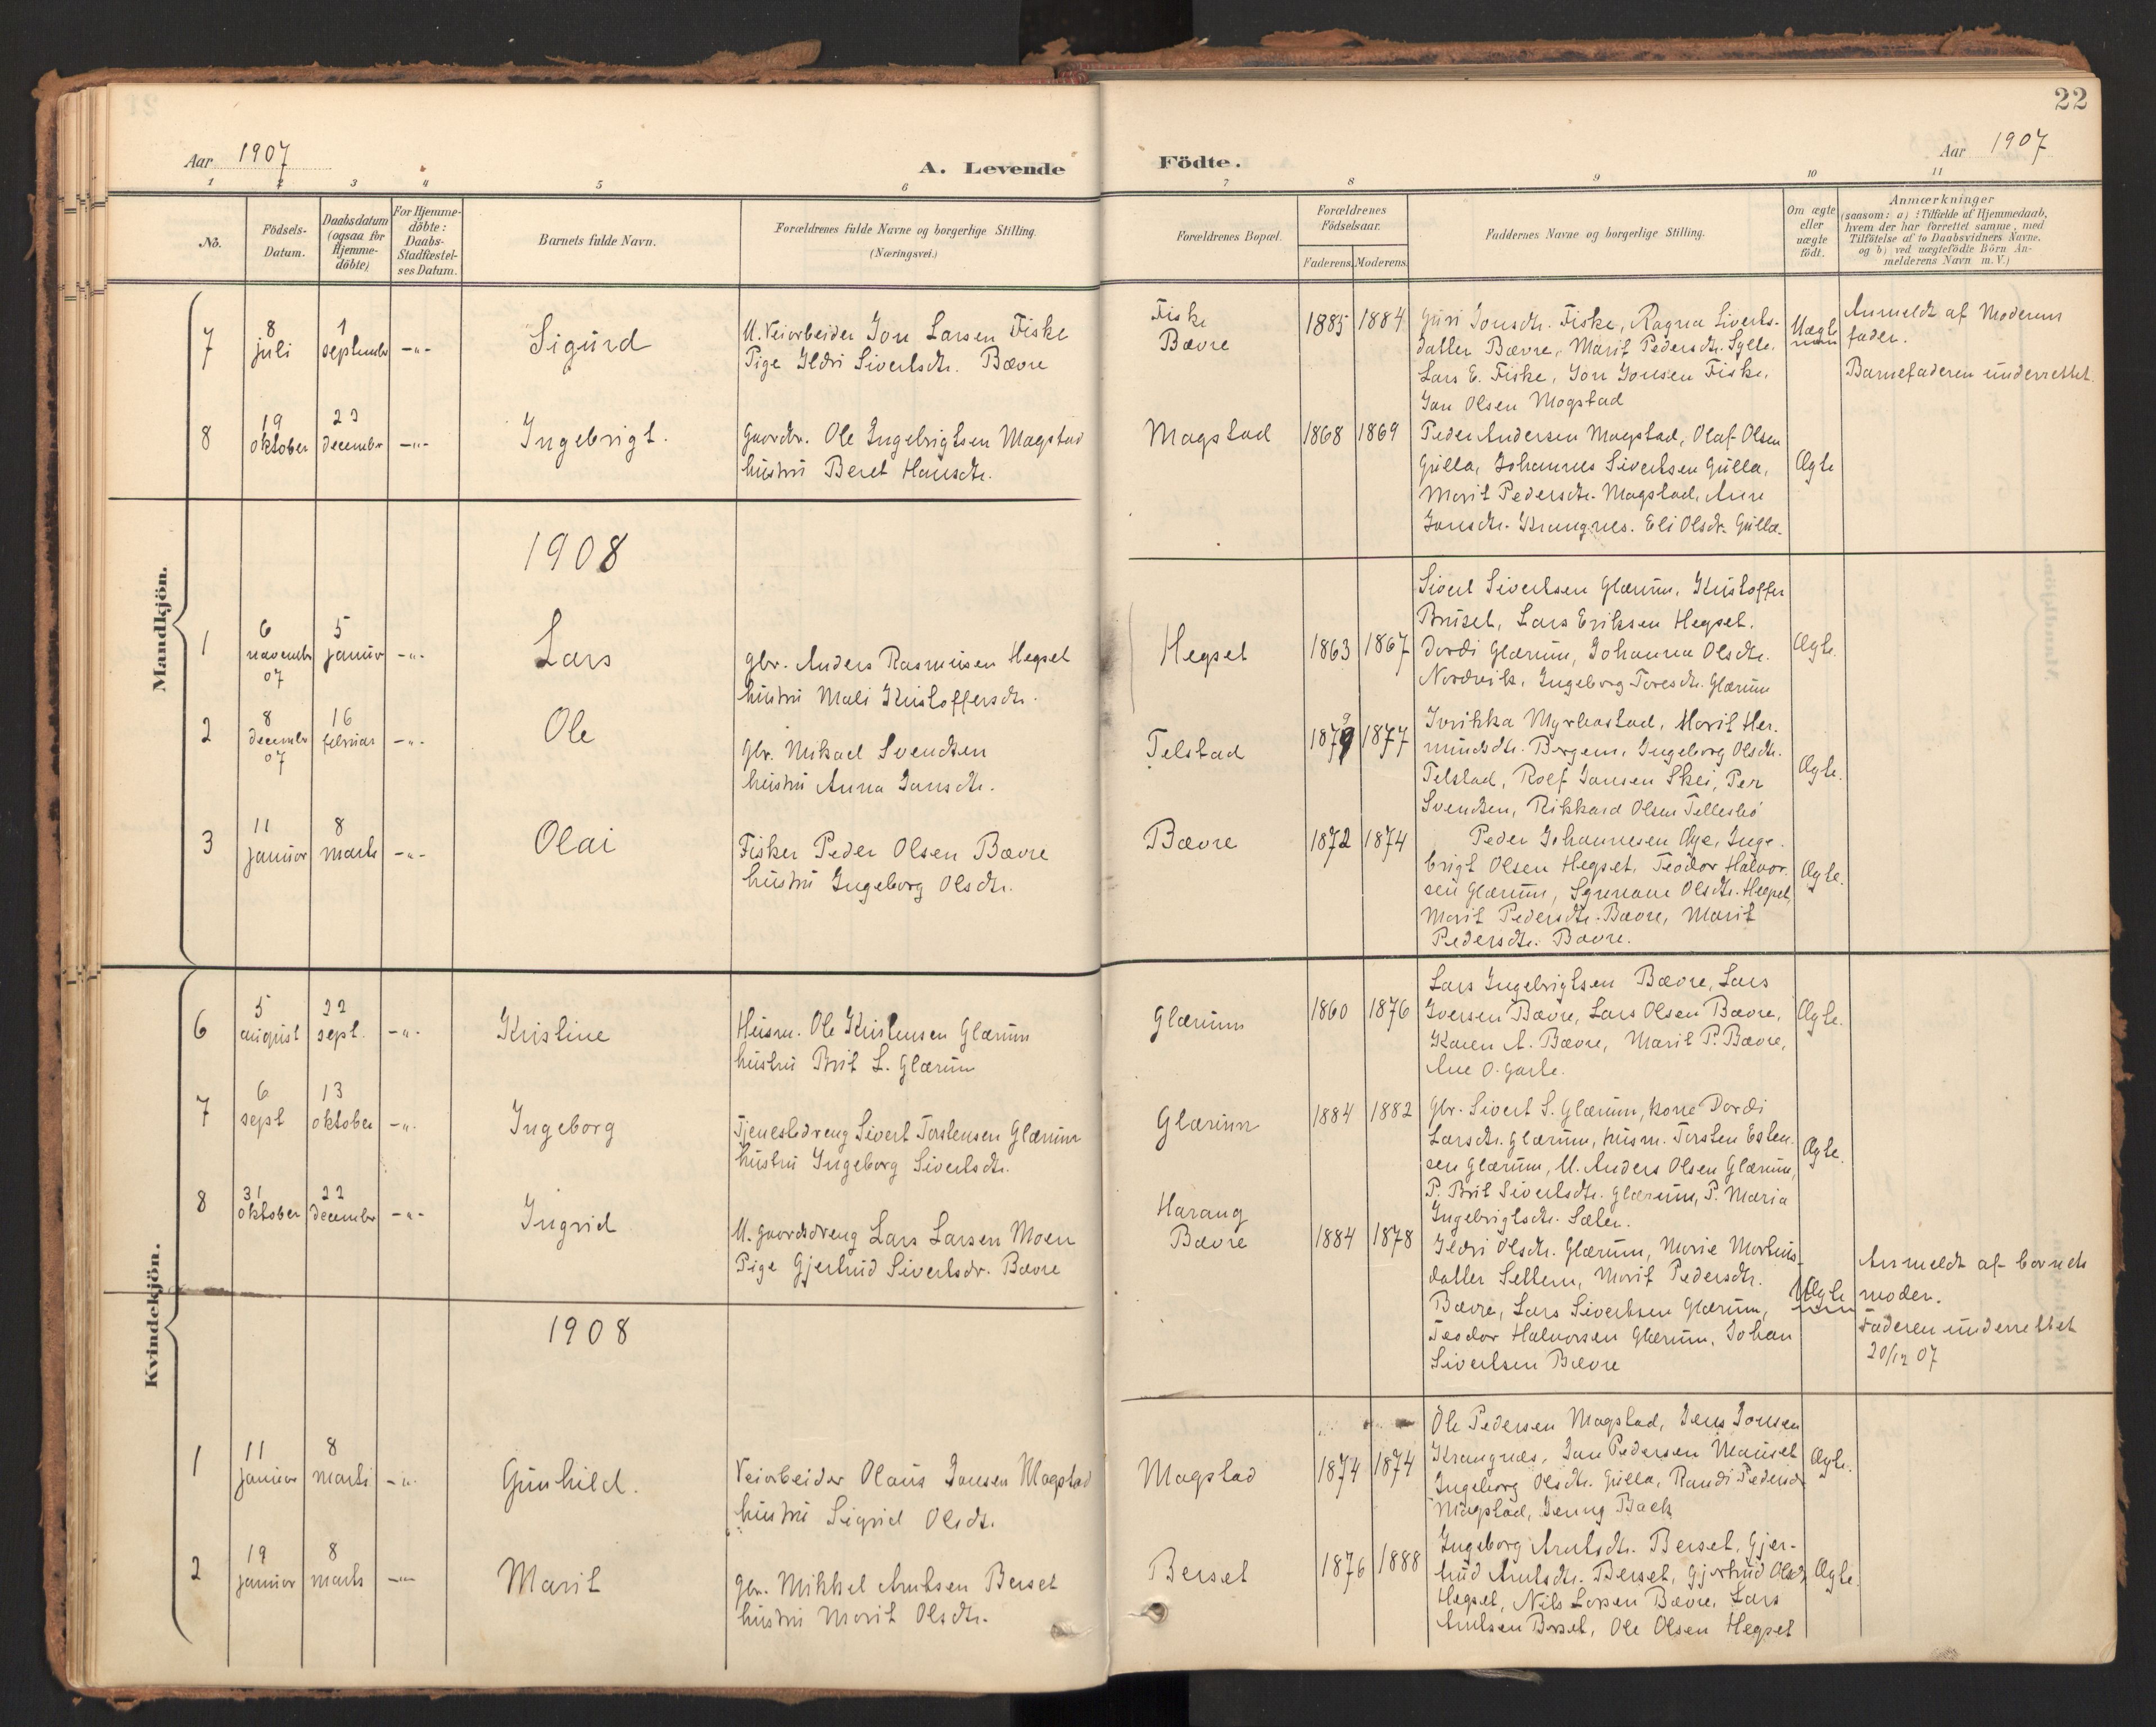 22
Aar 1907
A. Levende
Födte.
Aar 1907
1 2 3 4 5 6 7 8 9 10 11
No.
Födsels-
Datum.
Daabsdatum
(ogsaa for
Hjemme-
döbte)
For Hjemme-
döbte:
Daabs-
Stadfæstel-
ses Datum.
Barnets fulde Navn.
Forældrenes fulde Navne og borgerlige Stilling.
(Næringsvei.)
Forældrenes Bopæl.
Forældrenes
Födselsaar.
Faderens. Moderens.
Faddernes Navne og borgerlige Stilling.
Om ægte
eller
uægte
födt.
Anmærkninger
(saasom: a) i Tilfælde af Hjemmedaab,
hvem der har forrettet samme, med
Tilföielse af to Daabsvidners Navne,
og b) ved uægtefödte Börn An-
melderens Navn m. V.)
Mandkjön.
7
8
juli
1
septembr
-"-
Sigurd
U. Veiarbeider Jon Larsen Fiske
Pige Ildri Sivertsdtr. Bævre
Fiske
Bævre
1885 1884
Guri Jonsdtr. Fiske, Ragna Siverts-
datter Bævre, Marit Pedersdtr. Sylte.
Lars E. Fiske, Jon Jonsen Fiske.
Jon Olsen Mogstad
Uægte
Anmeldt af Moderens
fader.
Barnefaderen underrettet.
8
19
oktober
23
decembr
-"-
Ingebrigt.
Gaardbr. Ole Ingebrigtsen Magstad
hustru Beret Hansdtr.
Magstad
1868 1869
Peder Andersen Magstad, Olaf Olsen
Gulla, Johannes Sivertsen Gulla,
Marit Pedersdtr. Magstad, Ane
Jonsdtr. Krangnes. Eli Olsdr. Gulla.
Ægte
1908
1
6
november
07
5
januar
-"-
Lars
Gbr. Anders Rasmusen Hegset
hustru Mali Kristoffersdtr.
Hegset
1863 1867
Sivert Sivertsen Glærum, Kristoffer
Bruset, Lars Eriksen Hegset.
Dordi Glærum, Johanna Olsdtr.
Nordvik, Ingeborg Toresdtr. Glærum
Ægte.
2
8
decembr
07
16
februar
-"-
Ole
Gbr. Mikael Svendsen
hustru Anna Jansdtr.
Telstad
1879 1877
9
Myrbostad, Marit Her-
mundsdtr. Bergem, Ingeborg Olsdtr.
Telstad, Rolf Jansen Skei, Per
Svendsen, Rikkard Olsen Tellesbö
Ægte.
3
11
januar
8
marts
-"-
Olai
Fisker Peder Olsen Bævre
hustru Ingeborg Olsdtr.
Bævre
1872 1874
Peder Johannesen Øye, Inge-
brigt Olsen Hegset, Teodor Halvor-
sen Glærum, Olsdtr. Hegset,
Marit Pedersdtr. Bævre, Marit
Pedersdtr. Bævre.
Ægte.
Kvindekjön.
6
5
august
22
sept.
-"-
Kristine
Husm. Ole Kristensen Glærum
hustru Brit L. Glærum
Glærum
1860 1876
Lars Ingebrigtsen Bævre, Lars
Iversen Bævre, Lars Olsen Bævre,
Karen A. Bævre, Marit P. Bævre,
Ane O. Garte.
Ægte.
7
6
sept
13
oktober
-"-
Ingeborg
Tjenestedreng Sivert Torstensen Glærum
hustru Ingeborg Sivertsdtr.
Glærum
1884 1882
Gbr. Sivert S. Glærum, kone Dordi
Larsdtr. Glærum, husm. Torsten Esten-
sen Glærum, U. Anders Olsen Glærum,
P. Brit Sivertsdtr. Glærum, P. Maria
Ingebrigtsdtr. Sæter.
Ægte.
8
31
oktober
22
decembr
-"-
Ingrid
U. gaardsdreng Lars Larsen Moen
Pige Gjertrud Sivertsdr. Bævre
Harang
Bævre
1884 1878
Ildri Olsdtr. Glærum, Marie Martins-
datter Settem, Marit Pedersdtr.
Bævre, Lars Sivertsen Glærum,
Teodor Halvorsen Glærum, Johan
Sivertsen Bævre
UÆgte
Anmeldt af barnets
moder.
Faderen underrettet
20/12 07
1908
1
11
januar
8
marts
-"-
Gunhild.
Veiarbeider Olaus Jonsen Magstad
hustru Sigrid Olsdtr.
Magstad
1874 1874
Ole Pedersen Magstad, Jens Jonsen
Krangnæs, Jon Pedersen
Ingeborg Olsdtr. Gulla, Randi Pedersdr
Magstad, Jenny Bach
Ægte.
2
19
januar
8
marts
-"-
Marit
Gbr. Mikkel Arntsen Berset
hustru Marit Olsdtr.
Berset
1876 1888
Ingeborg Arntsdtr. Berset, Gjer-
trud Arntsdtr. Berset, Gjertrud Olsdtr
Hegset, Nils Larsen Bævre, Lars
Arntsen Berset, Ole Olsen Hegset
Ægte.